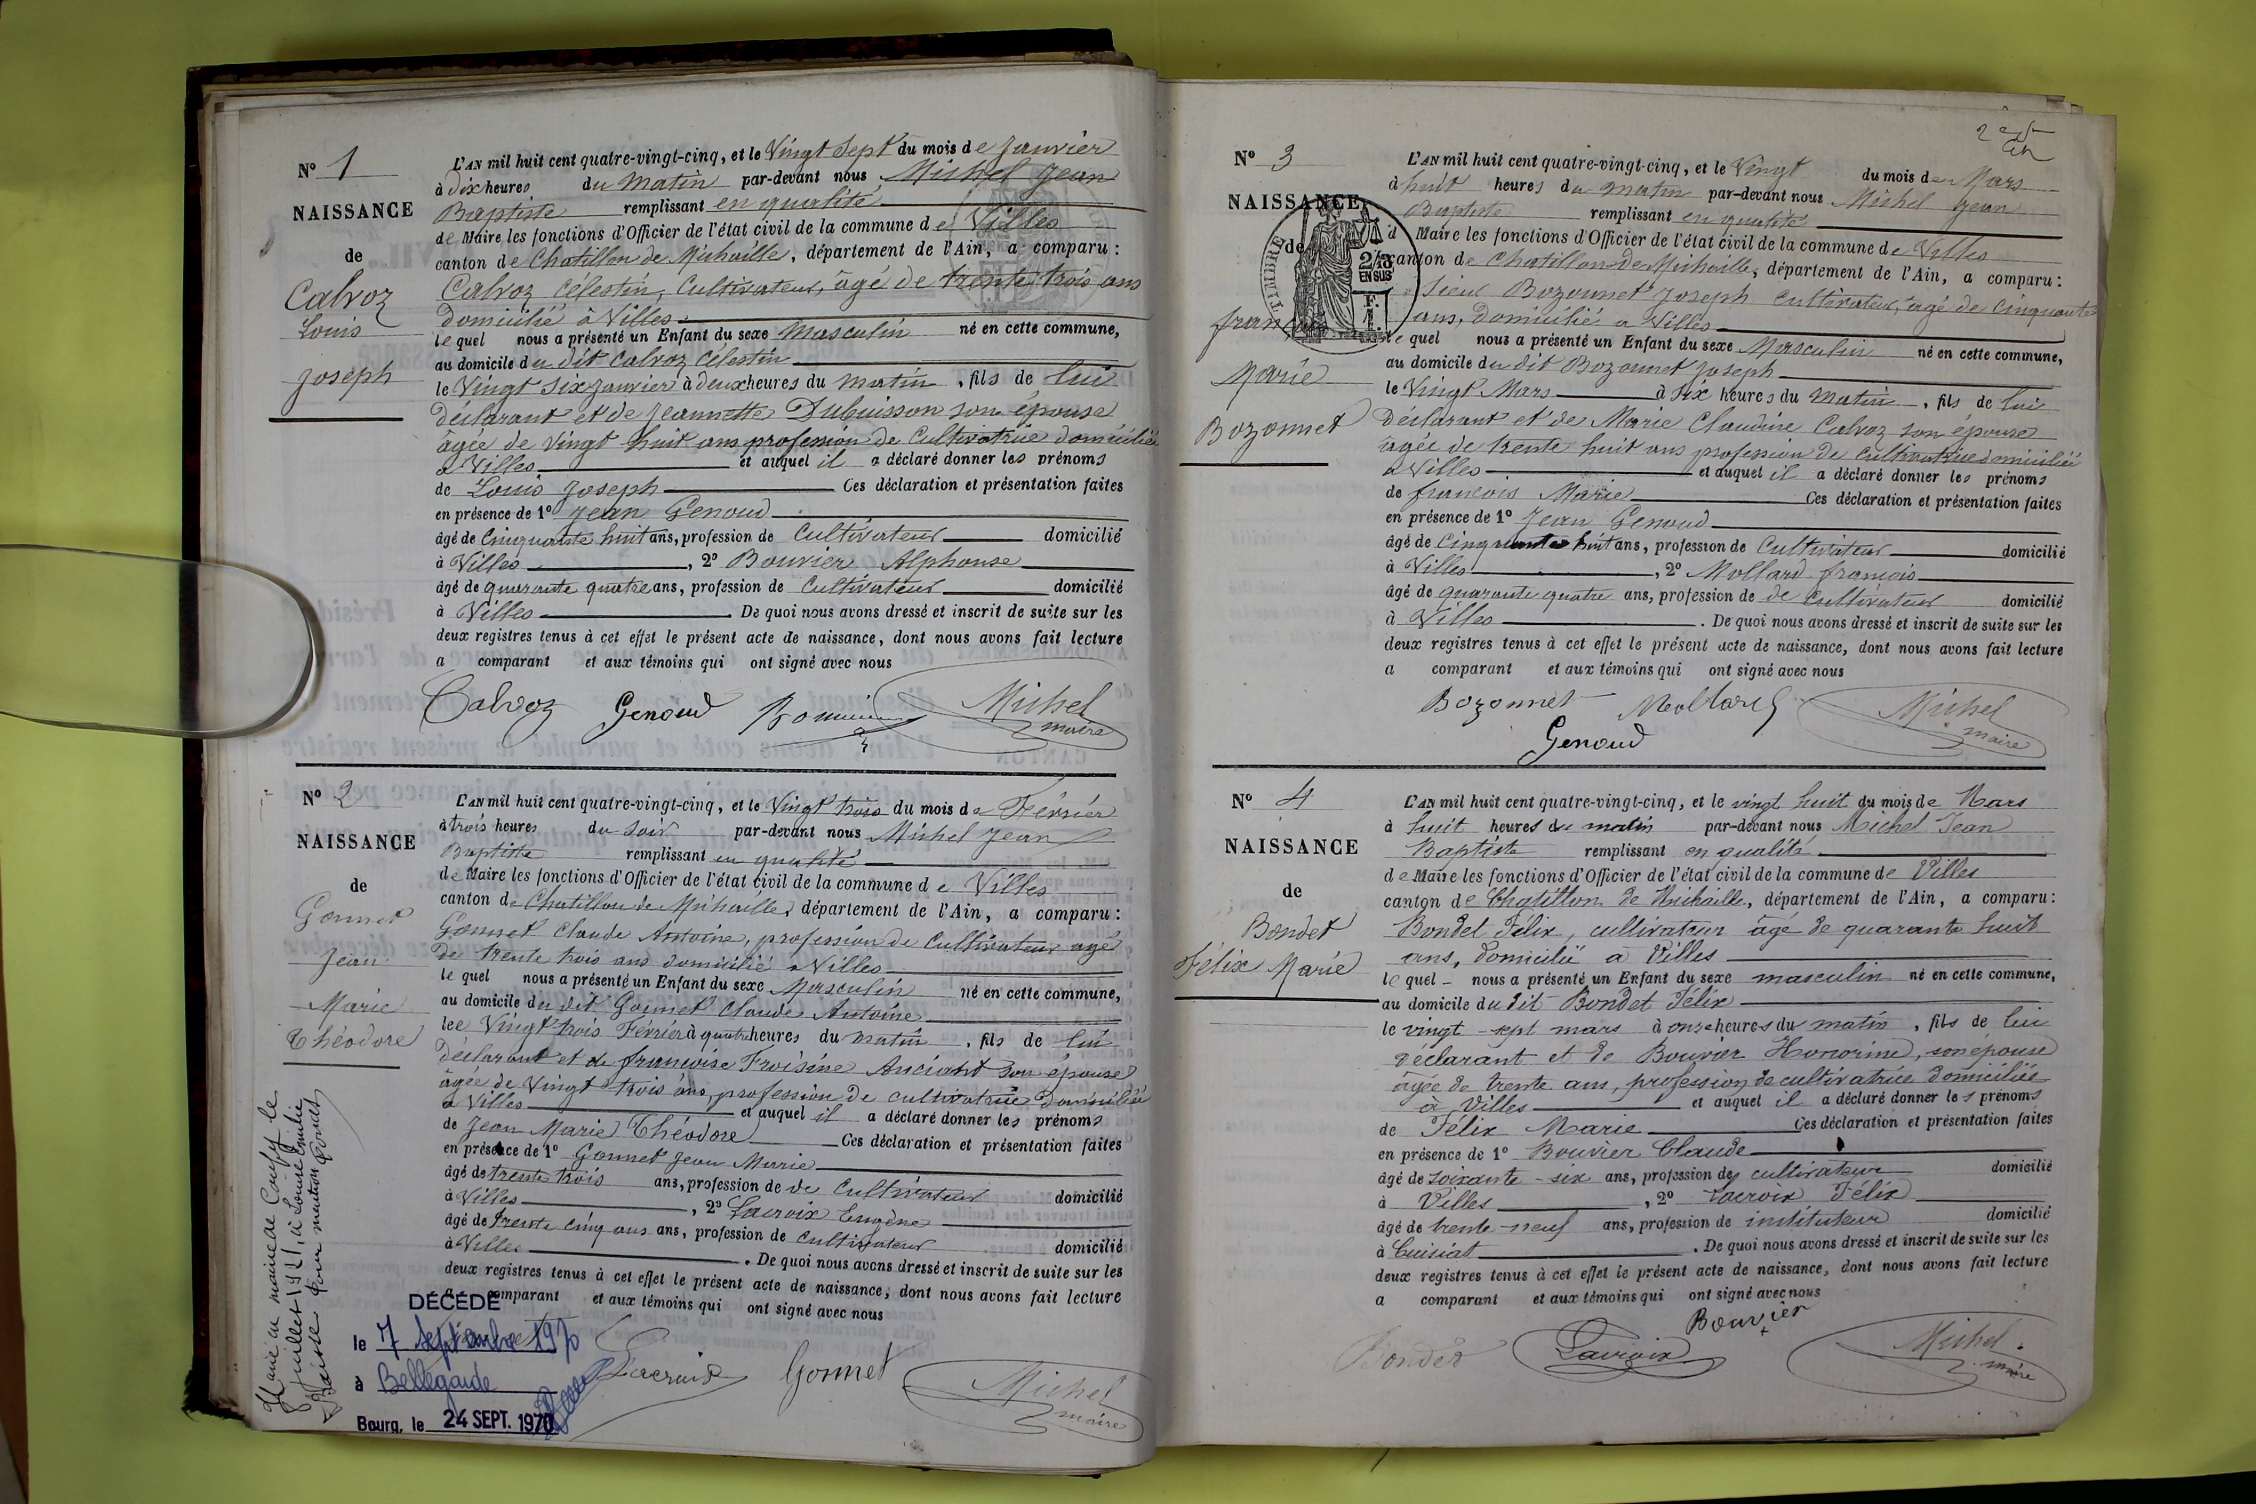 N° 1
NAISSANCE
de
Calvoz
Louis
Joseph
L'AN mil huit cent quatre-vingt-cinq, et le Vingt Sept du mois de Janvier
à dix heures du matin par-devant nous Michel Jean
Baptiste remplissant en qualité
de Maire les fonctions d'Officier de l'état civil de la commune de Villes
canton de Chatillon de Michaille, département de l'Ain, a comparu :
Calvoz Célestin, Cultivateur, âgé de trente trois ans
domicilié à Villes
lequel nous a présenté un Enfant du sexe Masculin né en cette commune,
au domicile du dit Calvoz Célestin
le Vingt Six Janvier à deux heures du matin, fils de lui
déclarant et de Jeannette Dubuisson son épouse
âgée de Vingt huit ans profession de Cultivatrice domiciliée
à Villes et auquel il a déclaré donner les prénoms
de Louis Joseph Ces déclaration et présentation faites
en présence de 1° Jean Genoud
âgé de Cinquante huit ans, profession de Cultivateur domicilié
à Villes, 2° Bouvier Alphonse
âgé de quarante quatre ans, profession de Cultivateur domicilié
à Villes. De quoi nous avons dressé et inscrit de suite sur les
deux registres tenus à cet effet le présent acte de naissance, dont nous avons fait lecture
a comparant et aux témoins qui ont signé avec nous
Calvoz Genoud Bouvier Michel
maire
N° 2
NAISSANCE
de
Gonnet
Jean
Marie
Théodore
L'AN mil huit cent quatre-vingt-cinq, et le Vingt trois du mois de Février
à trois heures du soir par-devant nous Michel Jean
Baptiste remplissant en qualité
de Maire les fonctions d'Officier de l'état civil de la commune de Villes
canton de Chatillon de Michaille, département de l'Ain, a comparu :
Gonnet Claude Antoine, profession de Cultivateur agé
de trente trois ans domicilié à Villes
le quel nous a présenté un Enfant du sexe Masculin né en cette commune,
au domicile du dit Gonnet Claude Antoine
lee Vingt trois Février à quatre heures du matin, fils de lui
déclarant et de françoise Froisine Anciant son épouse
âgée de Vingt trois ans, profession de cultivatrice domiciliée
à Villes et auquel il a déclaré donner les prénoms
de Jean Marie Théodore Ces déclaration et présentation faites
en présence de 1° Gonnet Jean Marie
âgé de trente trois ans, profession de de Cultivateur domicilié
à Villes, 2° Lacroix Eugène
âgé de trente cinq ans ans, profession de cultivateur domicilié
à Villes. De quoi nous avons dressé et inscrit de suite sur les
deux registres tenus à cet effet le présent acte de naissance, dont nous avons fait lecture
a comparant et aux témoins qui ont signé avec nous
Lacroix Gonnet Michel
maire
Marié en mairie de le
juillet 1921, à Louise Emilie
Pour mention
DÉCÉDÉ
le 7 Septembre 1970
à Bellegarde
Bourg, le 24 SEPT. 1970
N° 3
NAISSANCE
de
françois
Marie
Bozonnet
TIMBRE
2/10 EN SUS
L'AN mil huit cent quatre-vingt-cinq, et le Vingt du mois de Mars
à huit heures du matin par-devant nous Michel Jean
Baptiste remplissant en qualité
d Maire les fonctions d'Officier de l'état civil de la commune de Villes
canton de Chatillon de Michaille, département de l'Ain, a comparu :
Sieur Bozonnet Joseph Cultivateur, agé de Cinquante
ans, domicilié a Villes
le quel nous a présenté un Enfant du sexe Masculin né en cette commune,
au domicile du dit Bozonnet Joseph
le Vingt Mars à six heures du matin, fils de lui
déclarant et de Marie Claudine Calvoz son épouse
agée de trente huit ans profession de cultivatrice domiciliée
a Villes et auquel il a déclaré donner les prénoms
de françois Marie Ces déclaration et présentation faites
en présence de 1° Jean Genoud
âgé de Cinquante huit ans, profession de Cultivateur domicilié
à Villes, 2° Mollard françois
âgé de quarante quatre ans, profession de de Cultivateur domicilié
à Villes. De quoi nous avons dressé et inscrit de suite sur les
deux registres tenus à cet effet le présent acte de naissance, dont nous avons fait lecture
a comparant et aux témoins qui ont signé avec nous
Bozonnet Mollard Michel
Genoud maire
N° 4
NAISSANCE
de
Bondet
Félix Marie
L'AN mil huit cent quatre-vingt-cinq, et le vingt huit du mois de Mars
à huit heures du matin par-devant nous Michel Jean
Baptiste remplissant en qualité
de Maire les fonctions d'Officier de l'état civil de la commune de Villes
canton de Chatillon de Michaille, département de l'Ain, a comparu :
Bondet Félix, cultivateur âgé de quarante huit
ans, domicilié à Villes
le quel nous a présenté un Enfant du sexe masculin né en cette commune,
au domicile du dit Bondet Félix
le vingt-sept mars à onze heures du matin, fils de lui
déclarant et de Bouvier Honorine, son épouse
âgée de trente ans, profession de cultivatrice domiciliée
à Villes et auquel il a déclaré donner les prénoms
de Félix Marie Ces déclaration et présentation faites
en présence de 1° Bouvier Claude
âgé de soixante-six ans, profession de cultivateur domicilié
à Villes, 2° Lacroix Félix
âgé de trente-neuf ans, profession de instituteur domicilié
à Cuisiat. De quoi nous avons dressé et inscrit de suite sur les
deux registres tenus à cet effet le présent acte de naissance, dont nous avons fait lecture
a comparant et aux témoins qui ont signé avec nous
Bouvier
Bondet Lacroix Michel
maire